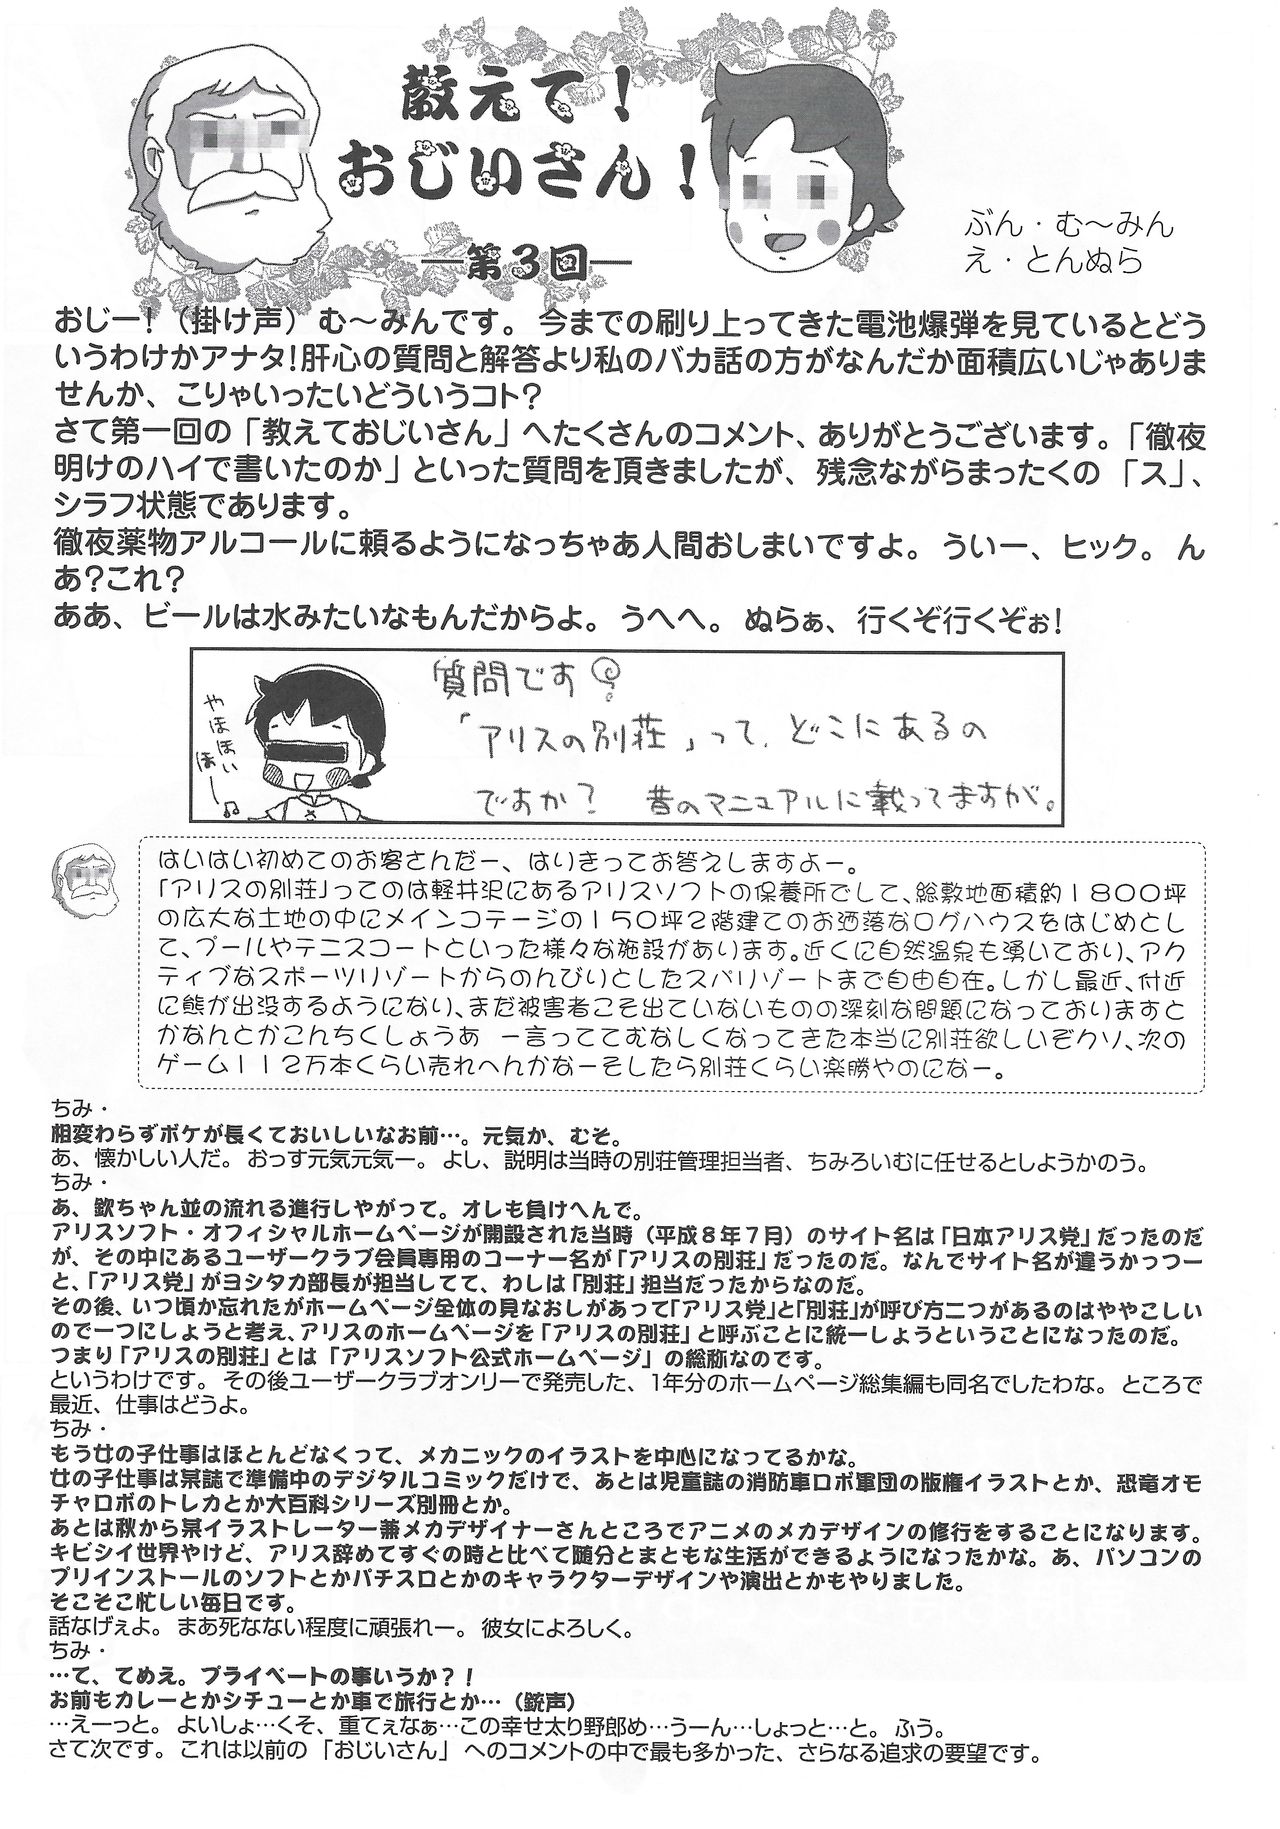 教えて！
おじいさん！
―第３回―
ぶん・む〜みん
え・とんぬら
おじー！（掛け声）む〜みんです。今までの刷り上ってきた電池爆弾を見ているとどう
いうわけかアナタ！肝心の質問と解答より私のバカ話の方がなんだか面積広いじゃありま
せんか、こりゃいったいどういうコト？
さて第一回の「教えておじいさん」へたくさんのコメント、ありがとうございます。「徹夜
明けのハイで書いたのか」といった質問を頂きましたが、残念ながらまったくの「ス」、
シラフ状態であります。
徹夜薬物アルコールに頼るようになっちゃあ人間おしまいですよ。ういー、ヒック。ん
あ？これ？
ああ、ビールは水みたいなもんだからよ。うへへ。ぬらぁ、行くぞ行くぞぉ！
やほほい
ほー♪
質問です？
「アリスの別荘」って、どこにあるの
ですか？ 昔のマニュアルに載ってますが。
はいはい初めてのお客さんだー、はりきってお答えしますよー。
「アリスの別荘」ってのは軽井沢にあるアリスソフトの保養所でして、総敷地面積約１８００坪
の広大な土地の中にメインコテージの１５０坪２階建てのお洒落なログハウスをはじめとし
て、プールやテニスコートといった様々な施設があります。近くに自然温泉も湧いており、アク
ティブなスポーツリゾートからのんびりとしたスパリゾートまで自由自在。しかし最近、付近
に熊が出没するようになり、まだ被害者こそ出ていないものの深刻な問題になっておりますと
かなんとかこんちくしょうあ ー言っててむなしくなってきた本当に別荘欲しいぞクソ、次の
ゲーム１１２万本くらい売れへんかなーそしたら別荘くらい楽勝やのになー。
ちみ・
相変わらずボケが長くておいしいなお前…。元気か、むそ。
あ、懐かしい人だ。おっす元気元気ー。よし、説明は当時の別荘管理担当者、ちみろいむに任せるとしようかのう。
ちみ・
あ、欽ちゃん並の流れる進行しやがって。オレも負けへんで。
アリスソフト・オフィシャルホームページが開設された当時（平成８年７月）のサイト名は「日本アリス党」だったのだ
が、その中にあるユーザークラブ会員専用のコーナー名が「アリスの別荘」だったのだ。なんでサイト名が違うかっつー
と、「アリス党」がヨシタカ部長が担当してて、わしは「別荘」担当だったからなのだ。
その後、いつ頃か忘れたがホームページ全体の見なおしがあって「アリス党」と「別荘」が呼び方二つがあるのはややこしい
ので一つにしようと考え、アリスのホームページを「アリスの別荘」と呼ぶことに統一しようということになったのだ。
つまり「アリスの別荘」とは「アリスソフト公式ホームページ」の総称なのです。
というわけです。その後ユーザークラブオンリーで発売した、１年分のホームページ総集編も同名でしたわな。ところで
最近、仕事はどうよ。
ちみ・
もう女の子仕事はほとんどなくって、メカニックのイラストを中心になってるかな。
女の子仕事は某誌で準備中のデジタルコミックだけで、あとは児童誌の消防車ロボ軍団の版権イラストとか、恐竜オモ
チャロボのトレカとか大百科シリーズ別冊とか。
あとは秋から某イラストレーター兼メカデザイナーさんところでアニメのメカデザインの修行をすることになります。
キビシイ世界やけど、アリス辞めてすぐの時と比べて随分とまともな生活ができるようになったかな。あ、パソコンの
プリインストールのソフトとかパチスロとかのキャラクターデザインや演出とかもやりました。
そこそこ忙しい毎日です。
話なげぇよ。まあ死なない程度に頑張れー。彼女によろしく。
ちみ・
…て、てめえ。プライベートの事いうか？！
お前もカレーとかシチューとか車で旅行とか…（銃声）
…えーっと。よいしょ…くそ、重てぇなぁ…この幸せ太り野郎め…うーん…しょっと…と。ふう。
さて次です。これは以前の「おじいさん」へのコメントの中で最も多かった、さらなる追求の要望です。